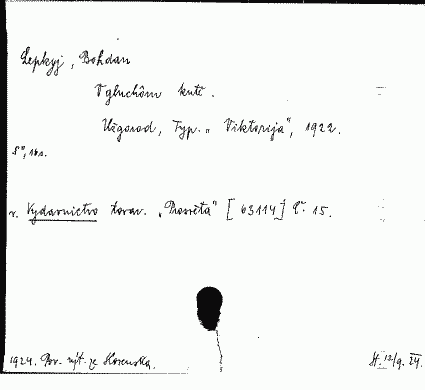 Lepkyj, Bohdan
V gluchôm kutě.
Užgorod, Typ. „Viktorija", 1922.
8°, 16 s.
v. Vydavnictvo tovar. „Prosvěta" [63114] č. 15.
1924. Pov. výt. ze Slovenska. H. 12/9. 24.